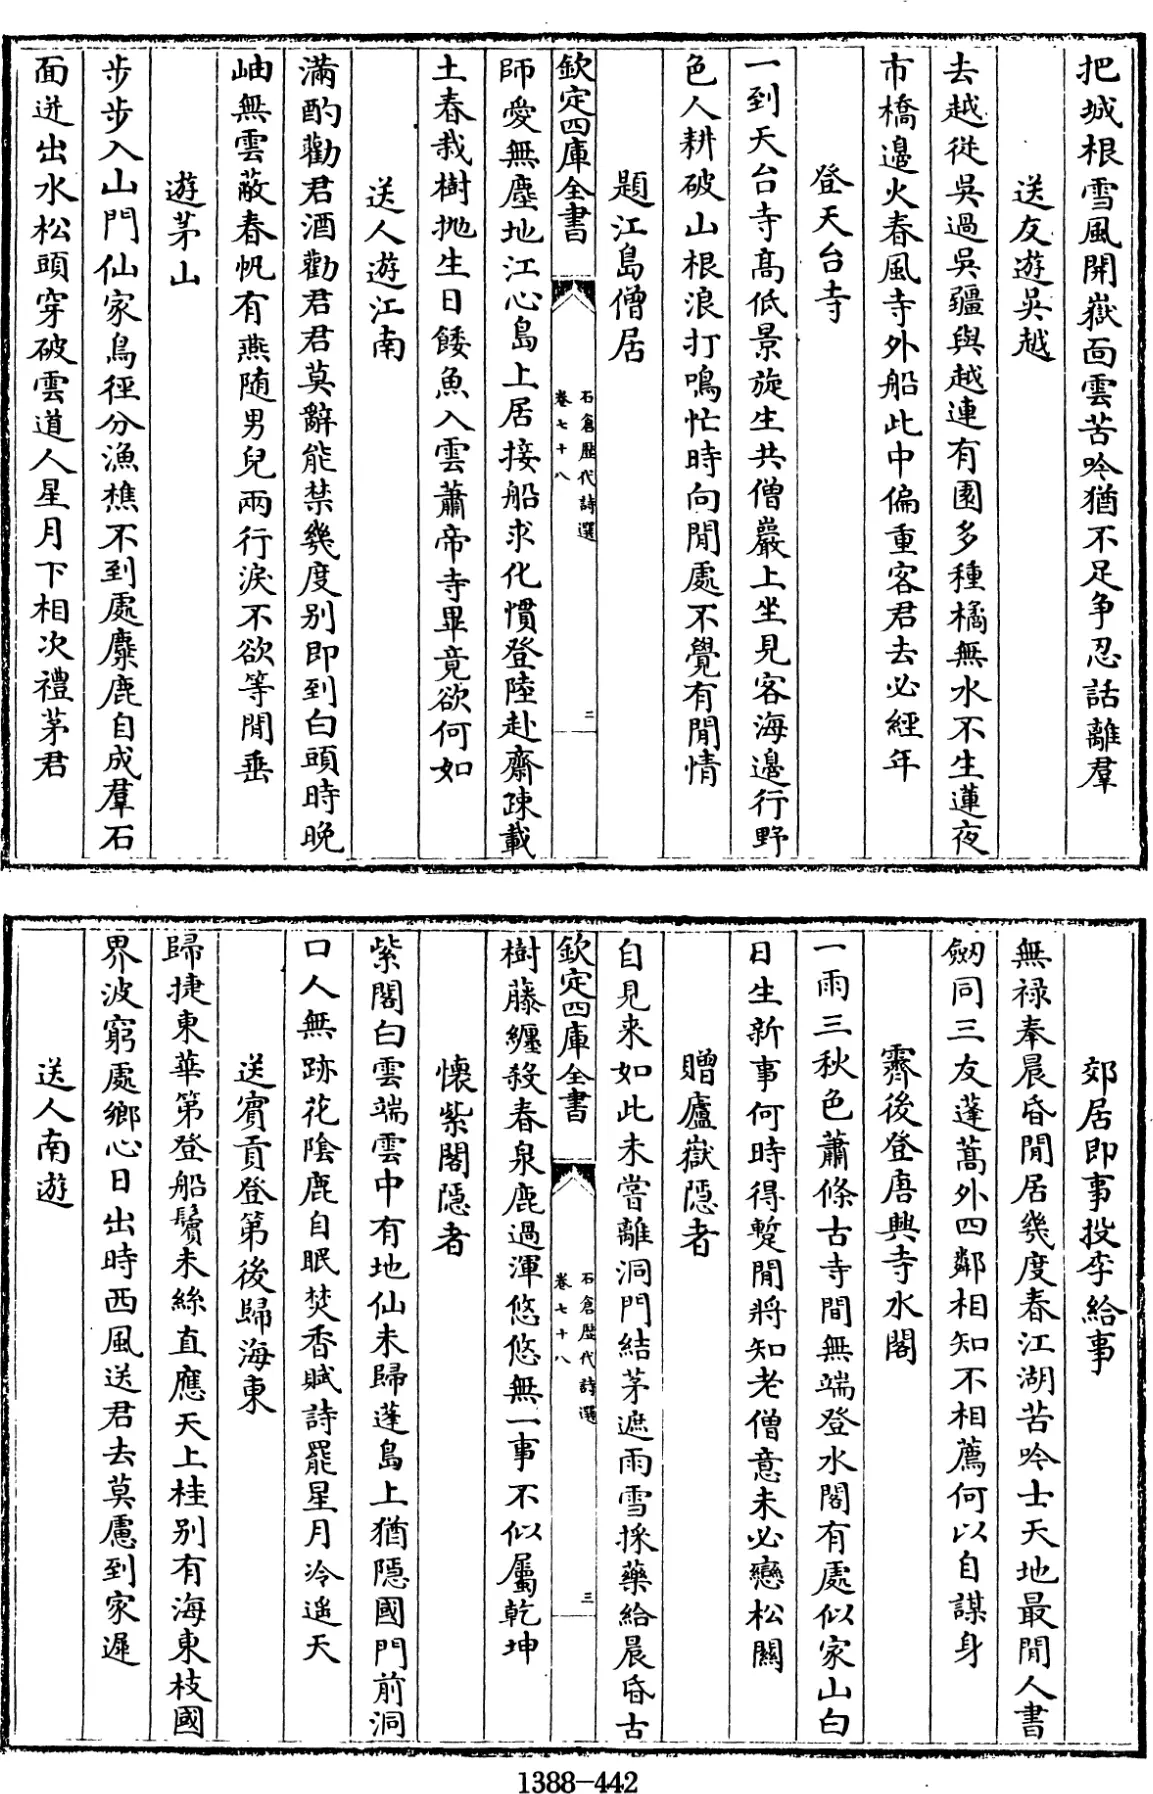 把城根雪風開嶽面雲苦吟猶不足争忍話離羣
送友遊吳越
去越從吳過吳疆與越連有園多種橘無水不生蓮夜
市橋邊火春風寺外船此中偏重客君去必經年
登天台寺
一到天台寺高低景旋生共僧巖上坐見客海邊行野
色人耕破山根浪打鳴忙時向閒處不覺有閒情
題江島僧居
欽定四庫全書
石倉歷代詩選
卷七十八
二
師愛無塵地江心島上居接船求化慣登陸赴齋疎載
土春栽樹抛生日餧魚入雲蕭帝寺畢竟欲何如
送人遊江南
滿酌勸君酒勸君君莫辭能禁幾度别即到白頭時晩
岫無雲蔽春帆有燕隨男兒兩行淚不欲等閒垂
遊茅山
步步入山門仙家鳥徑分漁樵不到處麋鹿自成羣石
面迸出水松頭穿破雲道人星月下相次禮茅君
郊居即事投李給事
無禄奉晨昏閒居幾度春江湖苦吟士天地最閒人書
劒同三友蓬蒿外四鄰相知不相薦何以自謀身
霽後登唐興寺水閣
一雨三秋色蕭條古寺間無端登水閣有處似家山白
日生新事何時得蹔閒將知老僧意未必戀松關
贈廬嶽隱者
自見来如此未嘗離洞門結茅遮雨雪採藥給晨昏古
欽定四庫全書
石倉歷代詩選
卷七十八
三
樹藤纏殺春泉鹿過渾悠悠無一事不似屬乾坤
懐紫閣隱者
紫閣白雲端雲中有地仙未歸蓬島上猶隱國門前洞
口人無跡花陰鹿自眠焚香賦詩罷星月冷遙天
送賓貢登第後歸海東
歸捷東華第登船鬢未絲直應天上桂别有海東枝國
界波窮處鄉心日出時西風送君去莫慮到家遲
送人南遊
1388—442